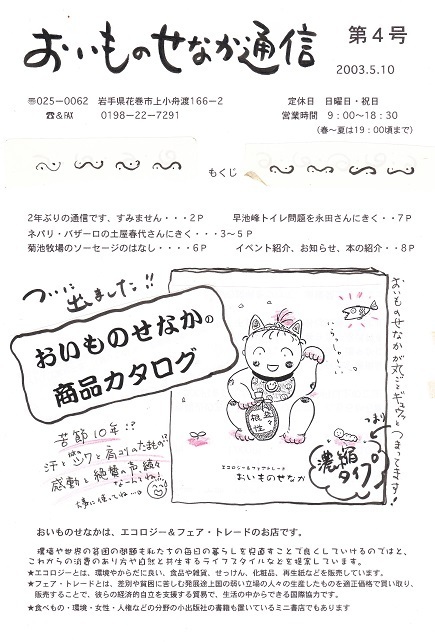 おいものせなか通信
第4号
2003.5.10
〒025-0062 岩手県花巻市上小舟渡166-2
☎&FAX 0198-22-7291
定休日 日曜日・祝日
営業時間 9:00〜18:30
(春〜夏は19:00頃まで)
もくじ
2年ぶりの通信です、すみません・・・2P
ネパリ・バザーロの土屋春代さんにきく・・・3〜5P
菊池牧場のソーセージのはなし・・・・6P
早池峰トイレ問題を永田さんにきく・・7P
イベント紹介、お知らせ、本の紹介・・8P
ついに出ました!!
おいものせなかの
商品カタログ
苦節10年!?
感動と絶賛の声続々
なーんてね
大事に使ってね
いらっしゃい
根性
エコロジー&フェアトレード
おいものせなか
おいものせなかが丸ごとギュウっとつまってます!
つまり
濃縮
タイプ
おいものせなかは、エコロジー&フェア・トレードのお店です。
環境や世界の貧困の問題を私たちの毎日の暮らしを見直すことで良くしていけるのではと、
これからの消費のあり方や自然と共生するライフスタイルなどを提案しています。
★エコロジーとは、環境やからだに良い、食品や雑貨、せっけん、化粧品、再生紙などを販売しています。
★フェア・トレードとは、差別や貧困に苦しむ発展途上国の弱い立場の人々の生産したものを適正価格で買い取り、
販売することで、彼らの経済的自立を支援する貿易で、生活の中からできる国際協力です。
★食べもの・環境・女性・人権などの分野の小出版社の書籍も置いているミニ書店でもあります